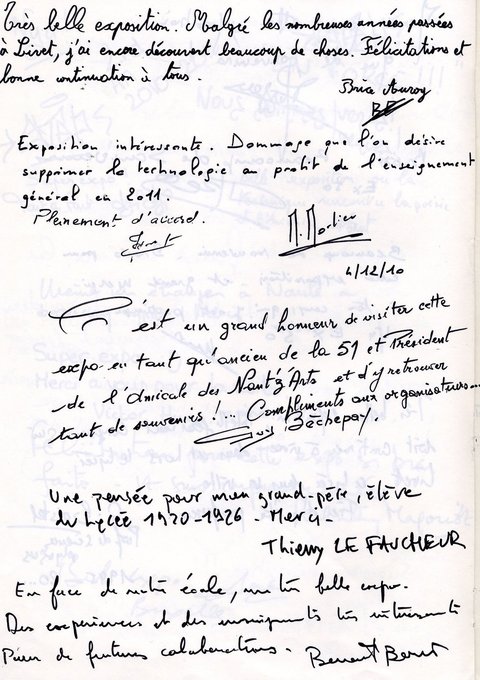 Très belle exposition. Malgré les nombreuses années passées
à Livet, j'ai encore découvert beaucoup de choses. Félicitations et
bonne continuation à tous.
Brice Auroy
Exposition intéressante. Dommage que l'on désire
supprimer la technologie au profit de l'enseignement
général en 2011.
Pleinement d'accord.
4/12/10
C'est un grand honneur de visiter cette
expo en tant qu'ancien de la 51 et Président
de l'Amicale des Nant'z'Arts et d'y retrouver
tant de souvenirs !... Compliments aux organisateurs...
Guy Bêchepay.
Une pensée pour mon grand-père, élève
du Lycée 1920-1926 - Merci -
Thierry LE FAUCHEUR
En face de notre école, une très belle expo.
Des expériences et des enseignants très intéressants
Pour de futures collaborations.